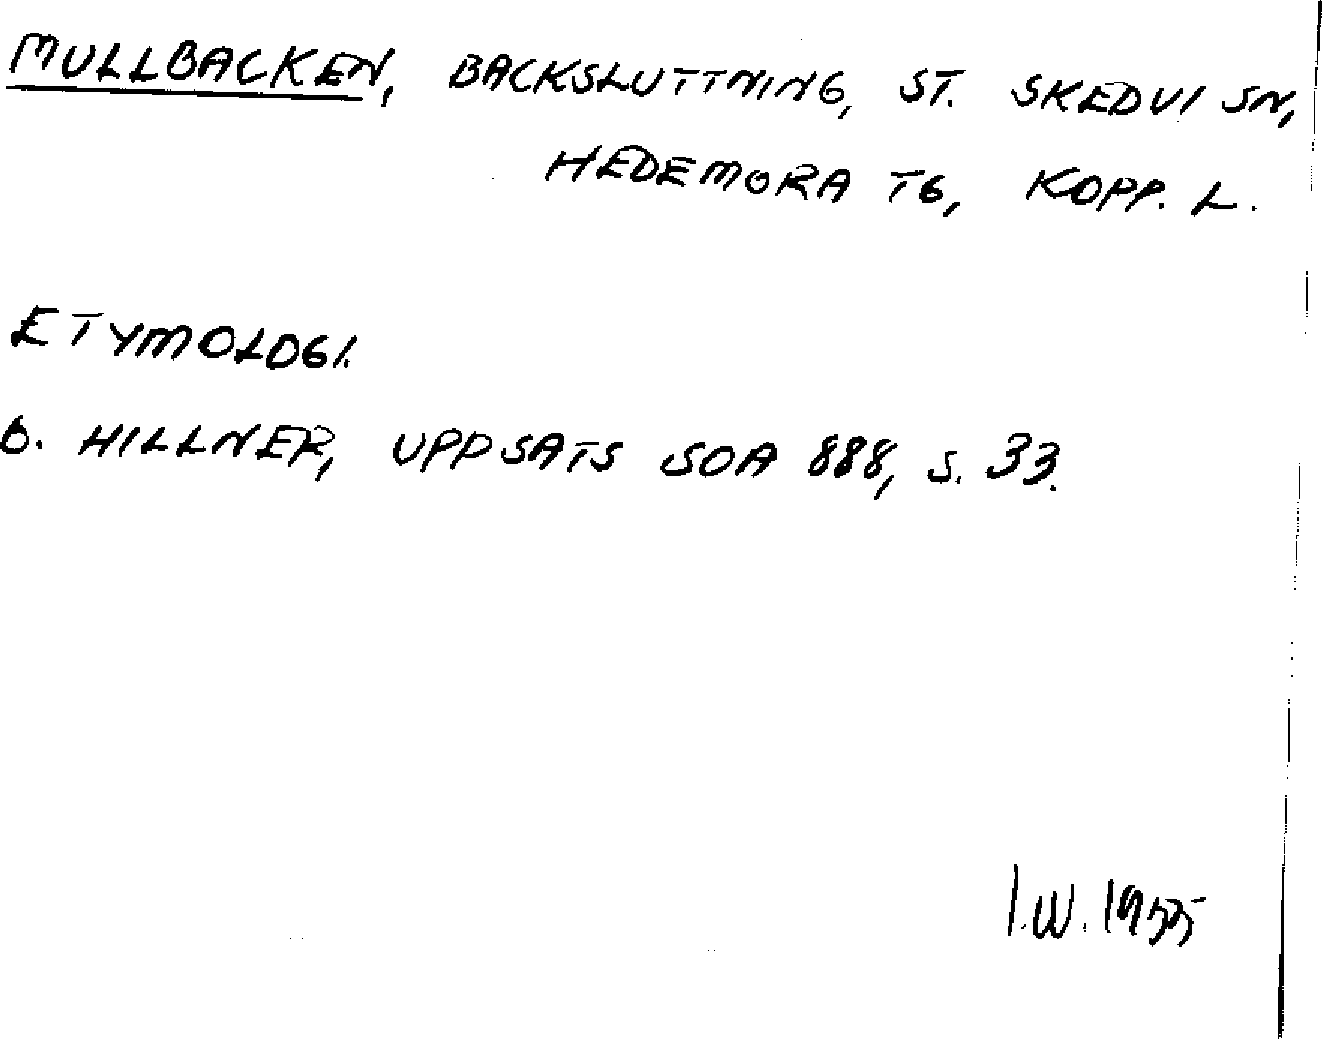 MULLBACKEN, BACKSLUTTNING, ST. SKEDVI SN,
HEDEMORA TG, KOPP. L.
ETYMOLOGI.
G. HILLNER, UPPSATS SOA 888, S. 33.
I.W. 1955